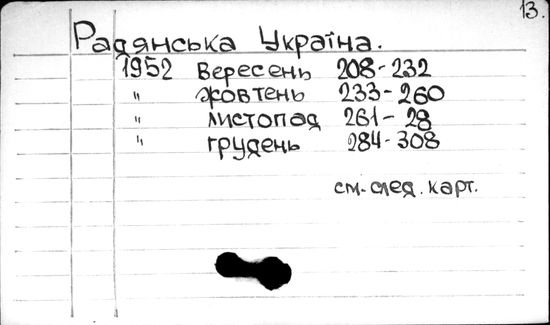 13.
Радянська Україна.
1952 Вересень 208-232
" жовтень 233-260
" листопад 261-28
" грудень 284-308
см. след. карт.